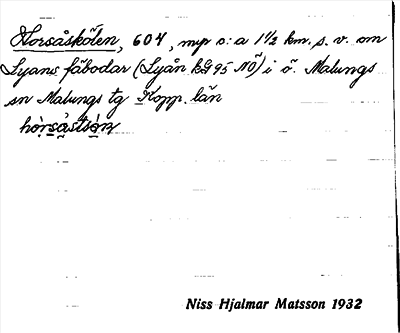 Horsåskölen, 604, mp o: a 1 1/2 km. s. v. om
Lyans fäbodar (Lyån kG 95 NÖ) i ö. Malungs
sn Malungs tg Kopp. län
Niss Hjalmar Matsson 1932